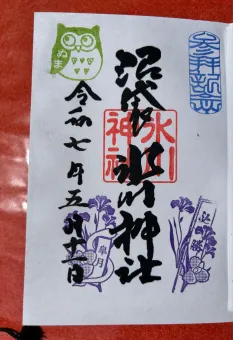 参拝記念
沼袋
氷川神社
氷川
神社
令和七年五月十一日
ぬま
皐月